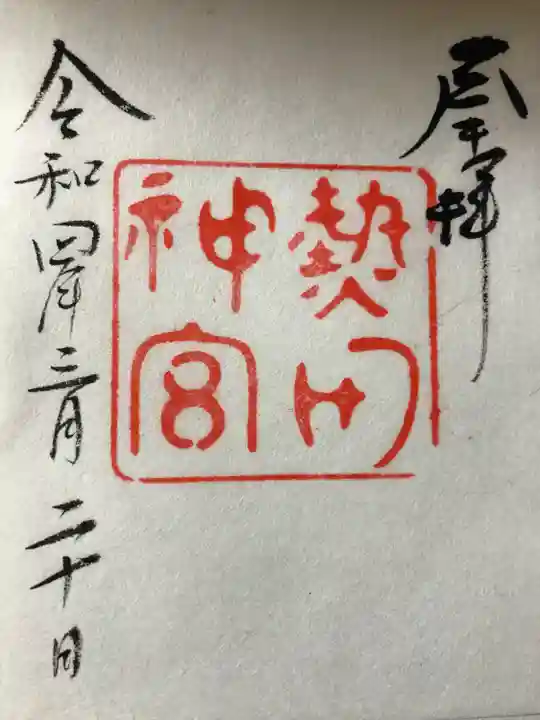 奉拝
熱田
神宮
令和四年三月二十日